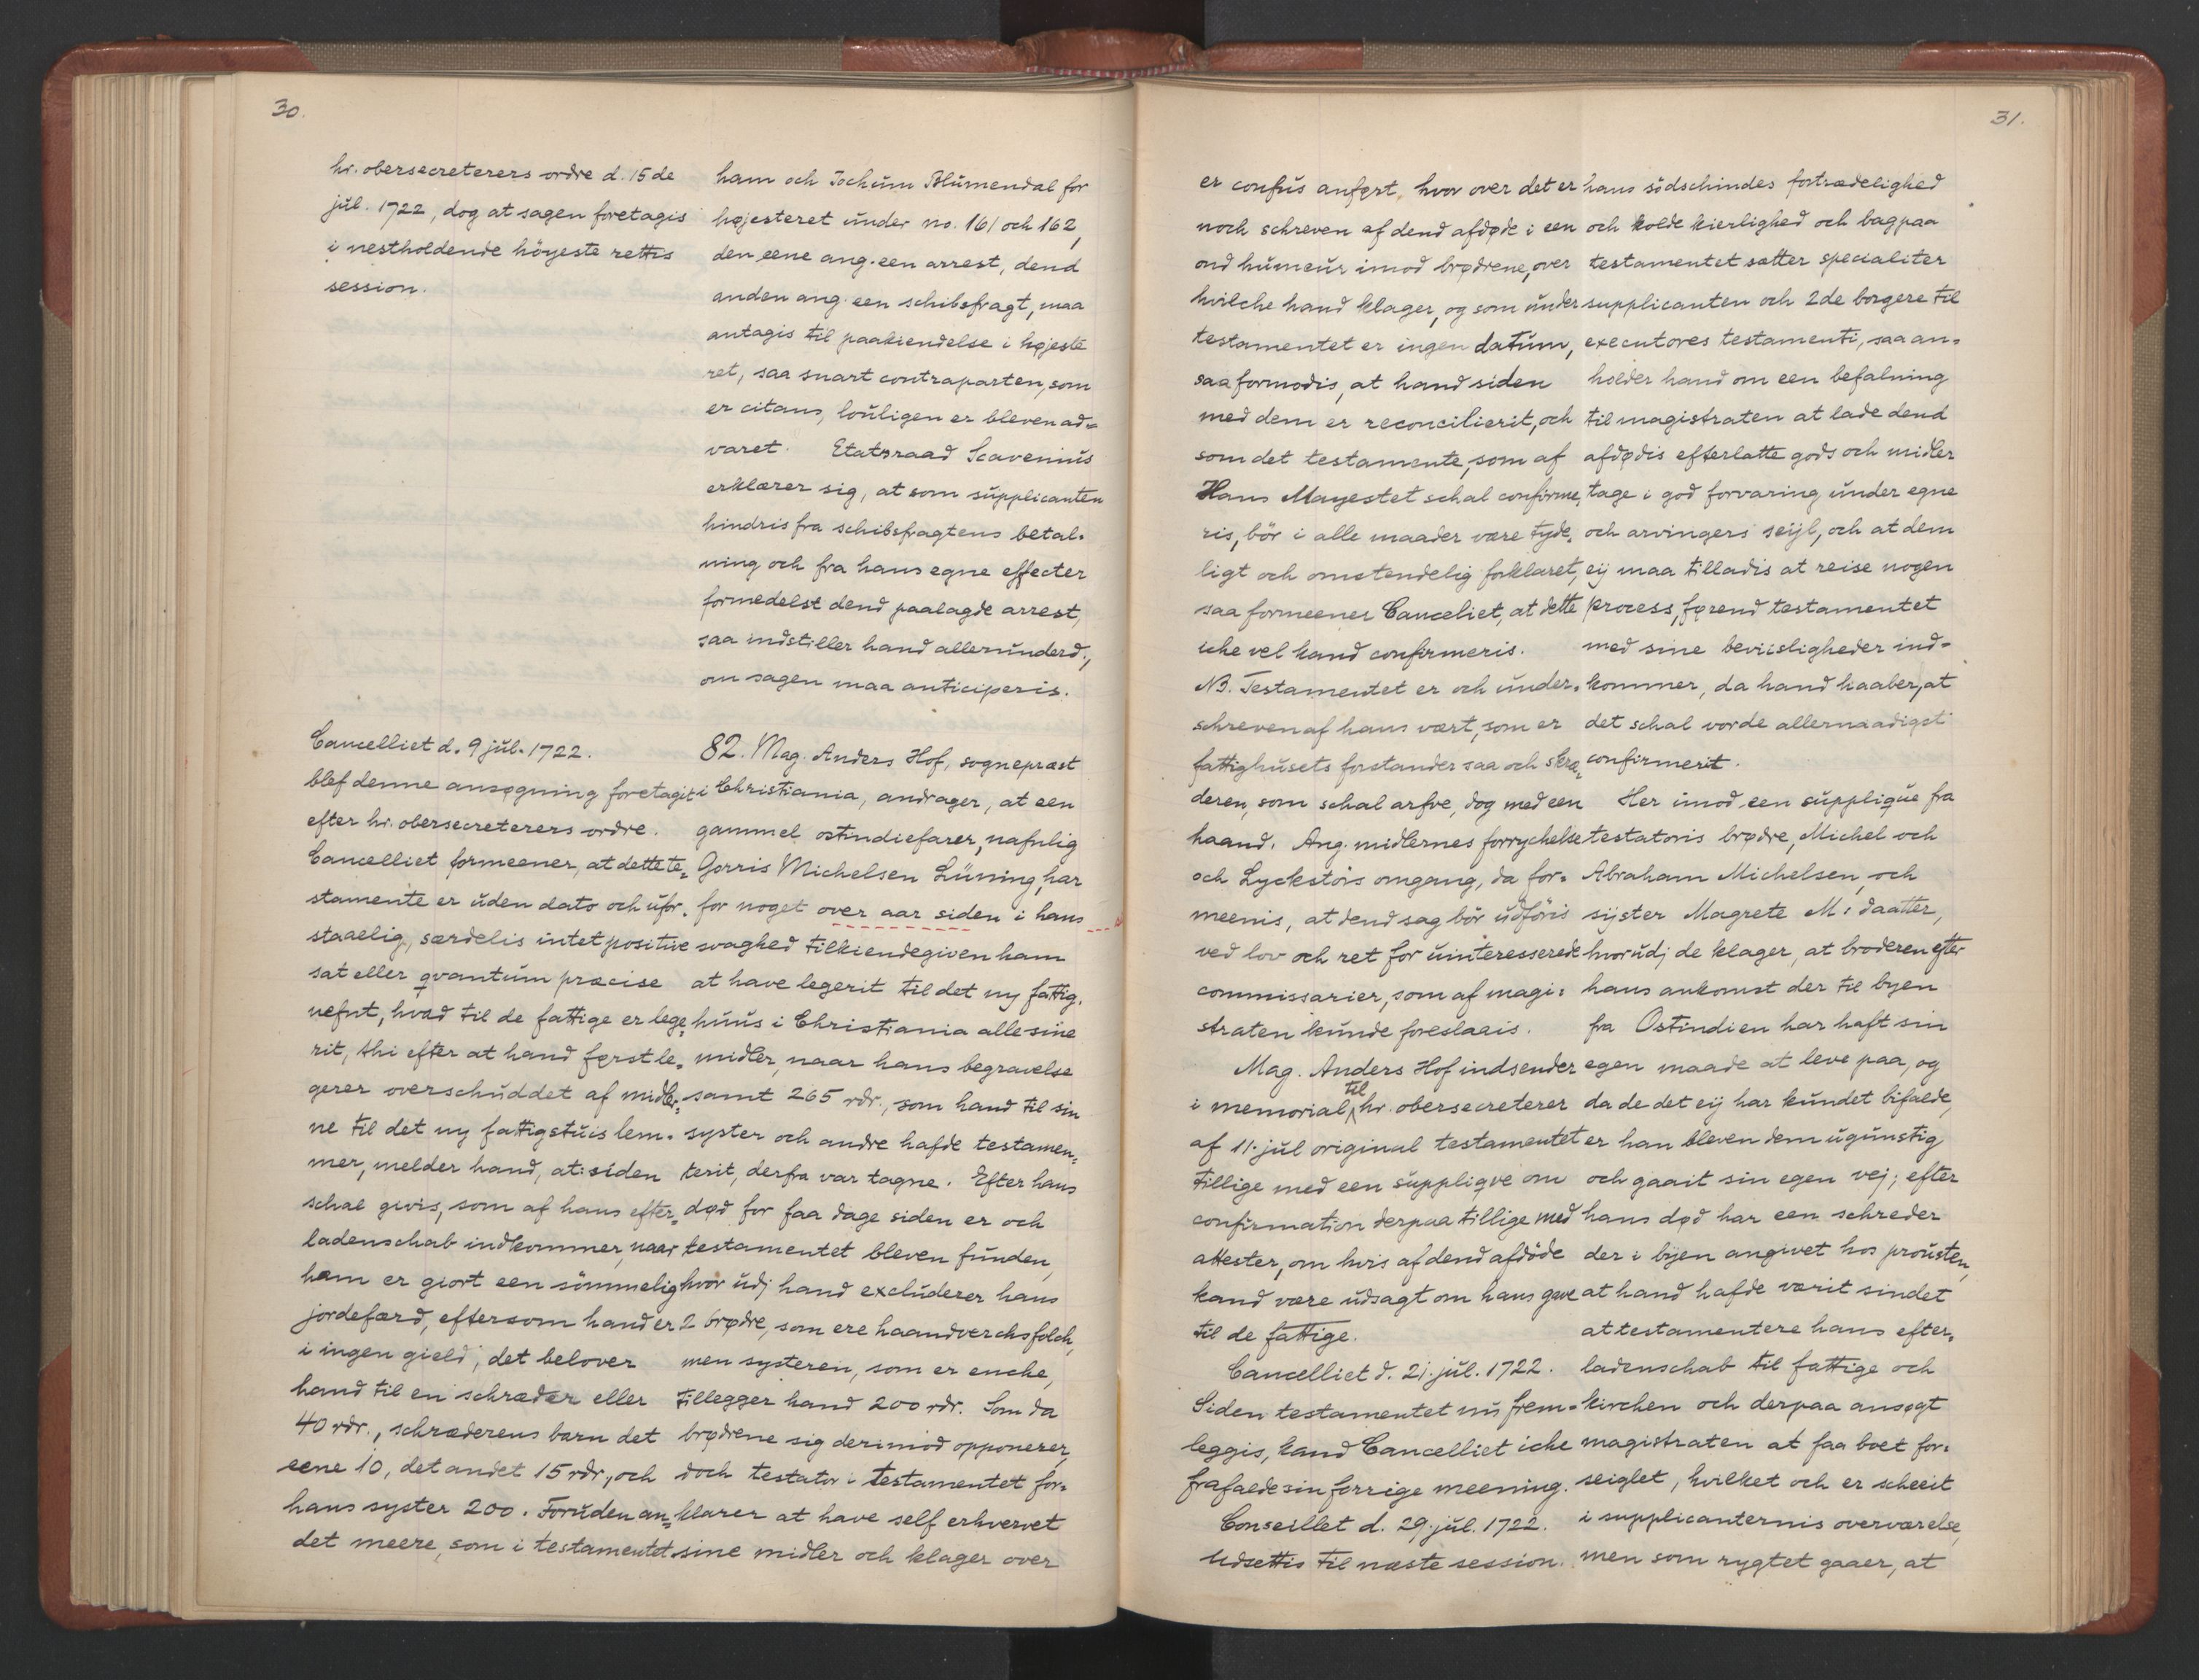 30.
hr. obersecreterers ordre d. 15 de
jul. 1722, dog at sagen foretagis
i nestholdende höyeste rettis
session.
ham och Jochum Blumendal for
højesteret under no. 161 och 162,
den eene ang. een arrest, dend
anden ang. een schibsfragt, maa
antagis til paakiendelse i højeste
ret, saa snart contraparten, som
er citans, louligen er bleven ad=
varet. Etatsraad Scavenius
erklærer sig, at som supplicanten
hindris fra schibsfragtens betal-
ning och fra hans egne effecter
formedelst dend paalagde arrest,
saa indstiller hand allerunderd.,
om sagen maa anticiperis.
Cancelliet d. 9 jul. 1722.
blef denne ansøgning foretagit
efter hr. obersecreterers ordre.
Cancelliet formeener, at dette te=
stamente er uden dato och ufor-
staaelig, særdelis intet positive
sat eller qvantum præcise
nefnt, hvad til de fattige er lege-
rit, thi efter at hand først le=
gerer overschuddet af midler=
ne til det ny fattigstuis lem-
mer, melder hand, at: siden
schal givis, som af hans efter=
ladenschab indkommer, naar
ham er giort een sömmelig
jordefærd, eftersom hand er
i ingen gield; det belover
hand til en schræder eller
40 rdr., schræderens barn det
eene 10, det andet 15 rdr., och
hans syster 200. Foruden an=
det meere, som i testamentet
82. Mag. Anders Hof, sognepræst
i Christiania, andrager, at een
gammel ostindiefarer, nafnlig
Gorris Michelsen Lüning, har
for noget over aar siden i hans
svaghed tilkiendegiven ham
at have legerit til det ny fattig-
huus i Christiania alle sine
midler, naar hans begravelse
samt 265 rdr., som hand til sin
syster och andre hafde testamen=
terit, derfra var tagne. Efter hans
død for faa dage siden er och
testamentet bleven funden,
hvor udj hand excluderer hans
2 brødre, som ere haandverchsfolch,
men systeren, som er enche,
tillegger hand 200 rdr. Som da
brødrene sig derimod opponerer,
doch testator i testamentet for=
klarer at have self erhvervet
sine midler och klager over
31.
er confus anført, hvor over det er
noch schreven af dend afdøde i een
ond humeur imod brødrene, over
hvilche hand klager, og som under
testamentet er ingen datum,
saa formodis, at hand siden
med dem er reconcilierit, och
som det testamente, som af
Hans Mayestet schal confirme-
ris, bör i alle maader være tyde-
ligt och omstendelig forklaret,
saa formeener Canceliet, at dette
iche vel kand confirmeris.
NB. Testamentet er och under-
schreven af hans vært, som er
fattighusets forstander saa och skræ-
deren, som schal arfve, dog med een
haand. Ang. midlernes forrychelse
och Lyckstøis omgang, da for-
meenis, at dend sag bör udföris
ved lov och ret for uinteresserede
commissarier, som af magi-
straten kunde foreslaais.
Mag. Anders Hof indsender
i memorial til hr. obersecreterer
af 11. jul original testamentet
tillige med een suppliqve om
confirmation derpaa tillige med
attester, om hvis af dend afdöde
kand være udsagt om hans gave
til de fattige.
Cancelliet d. 21. jul. 1722.
Siden testamentet nu frem=
leggis, kand Cancelliet iche
frafalde sin forrige meening.
Conseillet d. 29. jul. 1722.
Udsettis til næste session.
hans södschindes fortrædelighed
och kolde kierlighed och bagpaa
testamentet sætter specialiter
supplicanten och 2de borgere til
executores testamenti, saa an-
holder hand om een befalning
til magistraten at lade dend
afdødis efterlatte gods och midler
tage i god forvaring under egne
och arvingers seijl, och at dem
eij maa tilladis at reise nogen
process, førend testamentet
med sine beviisligheder ind-
kommer, da hand haaber, at
det schal vorde allernaadigst
confirmerit.
Her imod een supplique fra
testatoris brødre, Michel och
Abraham Michelsen, och
sijster Magrete M: daatter,
hvorudj de klager, at broderen efter
hans ankomst der til byen
fra Ostindien har haft sin
egen maade at leve paa, og
da de det eij har kundet bifalde,
er han bleven dem ugunstig
och gaait sin egen vej; efter
hans død har een schreder
der i bijen angivet hos prousten,
at hand hafde værit sindet
at testamentere hans efter-
ladenschab til fattige och
kirchen och derpaa ansøgt
magistraten at faa boet for-
seiglet, hvilket och er scheeit
i supplicanternis overværelse,
men som rygtet gaaer, at